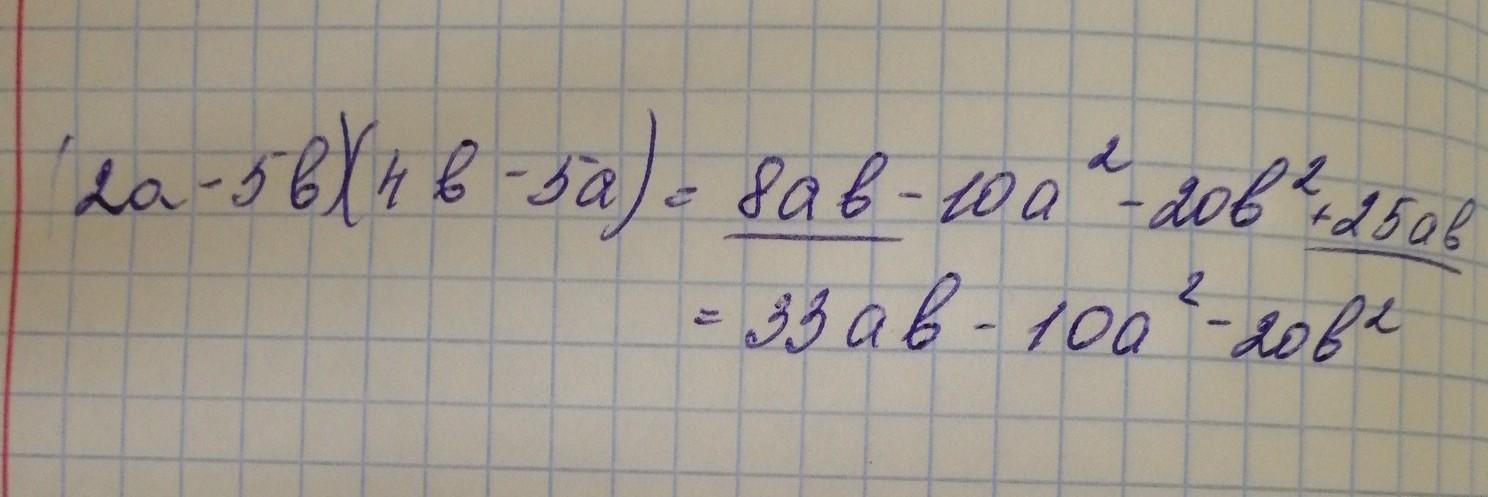 (2a - 5b)(4b - 5a) = 8ab - 10a² - 20b² + 25ab
= 33ab - 10a² - 20b²